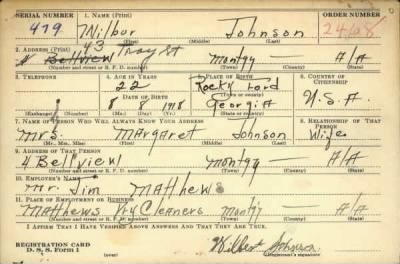 SERIAL NUMBER 1. NAME (Print) ORDER NUMBER
479 Wilbur Johnson 2468
(First) (Middle) (Last)
43 Troy St
2. ADDRESS (Print)
4 Bellview Montgy — A/A
(Number and street or R. F. D. number) (Town) (County) (State)
3. TELEPHONE 4. AGE IN YEARS 5. PLACE OF BIRTH 6. COUNTRY OF CITIZENSHIP
22 Rocky Ford
DATE OF BIRTH (Town or county)
8 8 1918 Georgia U.S.A.
(Exchange) (Number) (Mo.) (Day) (Yr.) (State or country)
7. NAME OF PERSON WHO WILL ALWAYS KNOW YOUR ADDRESS 8. RELATIONSHIP OF THAT PERSON
Mrs. Margaret Johnson Wife
(Mr., Mrs., Miss) (First) (Middle) (Last)
9. ADDRESS OF THAT PERSON
4 Bellview Montgy — A/A
(Number and street or R. F. D. number) (Town) (County) (State)
10. EMPLOYER'S NAME
Mr. Jim Matthews
11. PLACE OF EMPLOYMENT OR BUSINESS
Matthews Cleaners Montgy — A/A
(Number and street or R. F. D. number) (Town) (County) (State)
I AFFIRM THAT I HAVE VERIFIED ABOVE ANSWERS AND THAT THEY ARE TRUE.
REGISTRATION CARD
D. S. S. Form 1 (over) Wilbur Johnson
(Registrant's signature)